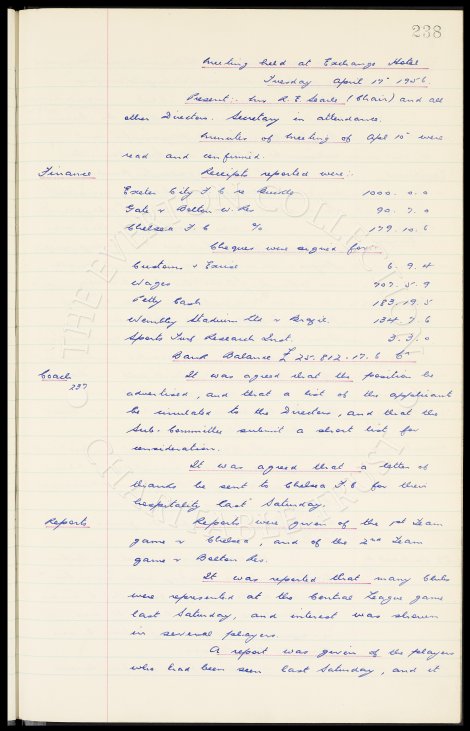 238
Meeting held at Exchange Hotel
Tuesday April 17th 1956.
Present:- Mr. R. E. Searle (Chair) and all
other Directors. Secretary in attendance.
Minutes of meeting of Apl 10th were
read and confirmed.
Finance. Receipts reported were:-
Exeter City F C re 1000. 0. 0
Gate v Bolton W. Res 90. 7. 0
Chelsea F C % 179. 10. 6
Cheques were signed for:-
Customs & Excise 6. 9. 4
Wages 707. 5. 9
Petty Cash 183. 19. 5
Wembley Stadium Ltd v Brazil 134. 7. 6
Sports Turf Research Inst. 3. 3. 0
Bank Balance £25.812.17.6 Cr
Coach
237
It was agreed that the position be
advertised, and that a list of the applicants
be circulated to the Directors, and that the
Sub-Committee submit a short list for
consideration.
It was agreed that a letter of
thanks be sent to Chelsea F.C. for their
hospitality last Saturday.
Reports Reports were given of the 1st Team
game v Chelsea, and of the 2nd Team
game v Bolton Res.
It was reported that many Clubs
were represented at the Central League game
last Saturday, and interest was shewn
in several players
A report was given of the players
who had been seen last Saturday, and it
THE EVERTON COLLECTION
CHARITABLE TRUST